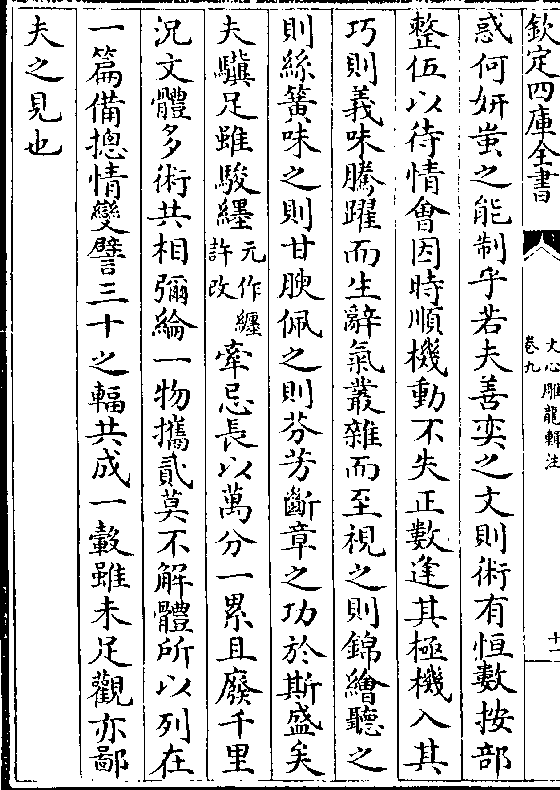 欽定四庫全書
文心雕龍輯注
卷九
十一
惑何妍蚩之能制乎若夫善奕之文則術有恒數按部
整伍以待情會因時順機動不失正數逢其極機入其
巧則義味騰躍而生辭氣叢雜而至視之則錦繪聽之
則絲簧味之則甘腴佩之則芬芳斷章之功於斯盛矣
夫驥足雖駿纆元作纏許改牽忌長以萬分一累且廢千里
況文體多術共相彌綸一物攜貳莫不解體所以列在
一篇備摠情變譬三十之輻共成一轂雖未足觀亦鄙
夫之見也